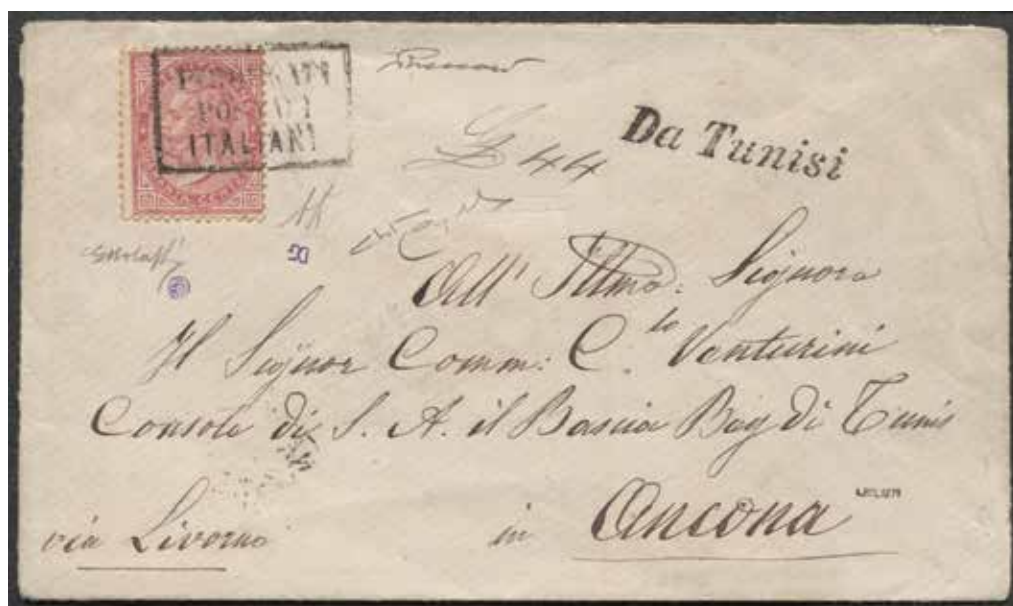 PIROSCAFI
POSTALI
ITALIANI
Da Tunisi
L 44
DG
All' Illmo: Signore
Il Signor Comm: C.to Venturini
Console di S. A. il Bascia Bey di Tunis
via Livorno in Ancona